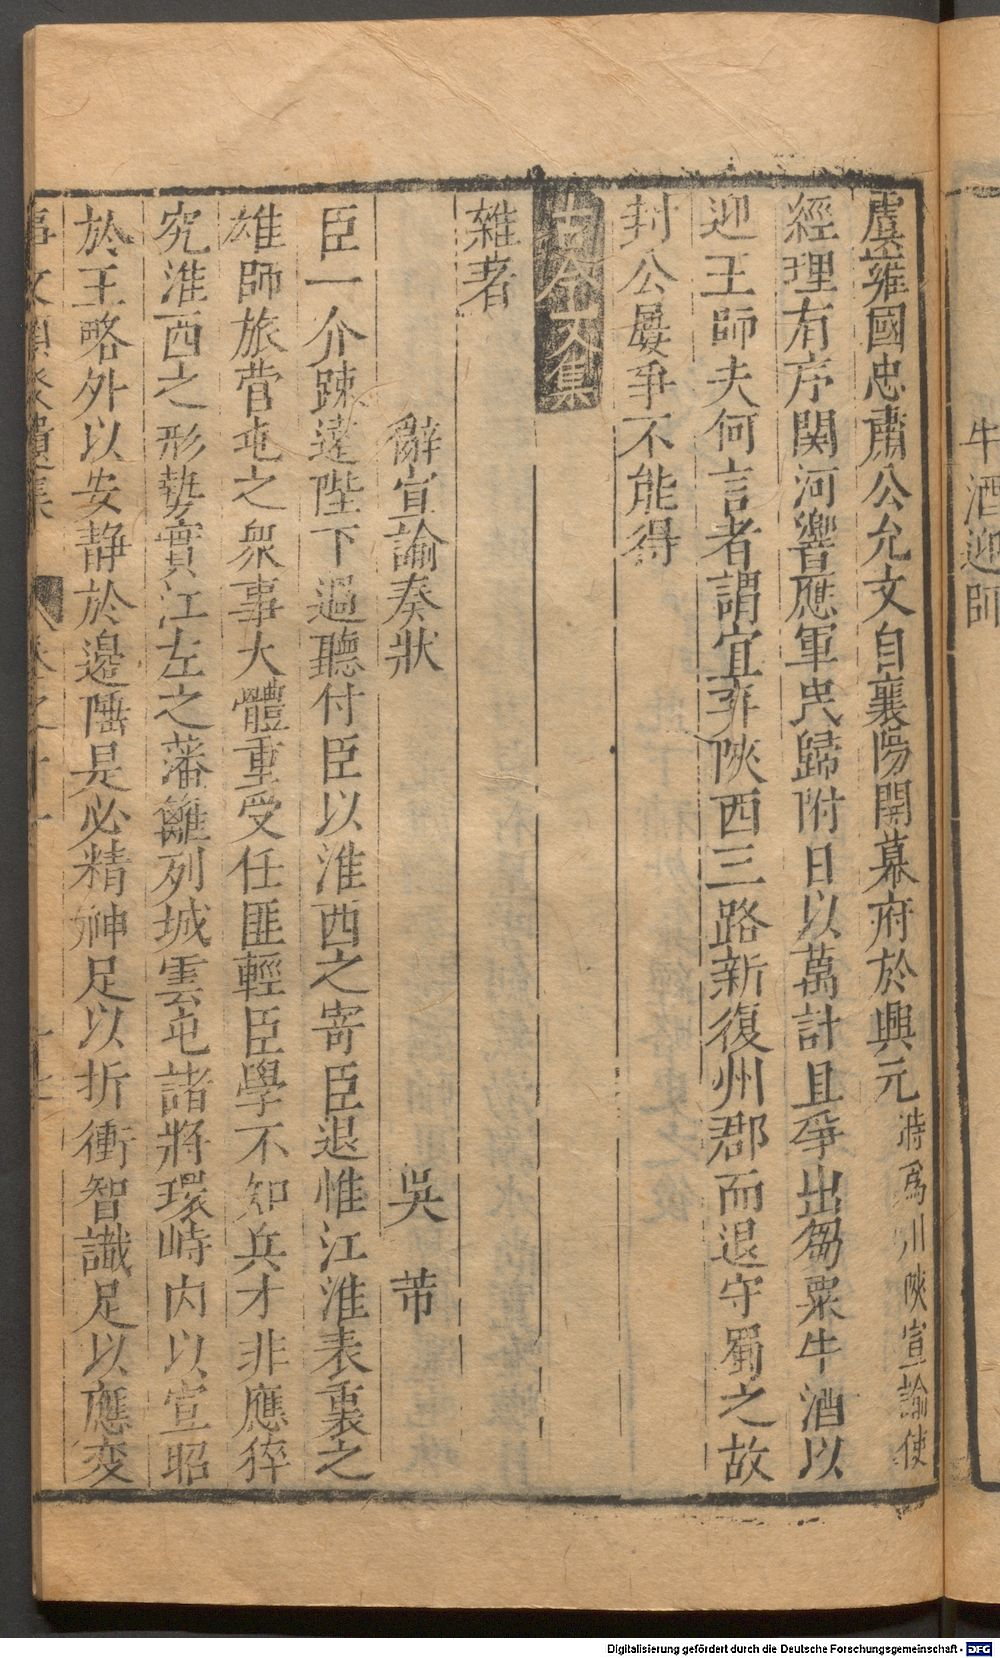 牛酒迎師
虞雍國忠肅公允文自襄陽開幕府於興元時爲川陝宣諭使
經理有序関河響應軍民歸附日以萬計且爭出芻粟牛酒以
迎王師夫何言者謂宜弃陝西三路新復州郡而退守蜀之故
封公屡爭不能得
古今文集
雜著
辭宣諭奏狀 吳芾
臣一介踈遠陛下過聽付臣以淮西之寄臣退惟江淮表裏之
雄師旅營屯之衆事大體重受任匪輕臣學不知兵才非應猝
究淮西之形勢實江左之藩籬列城雲屯諸將環峙内以宣昭
於王略外以安静於邉陲是必精神足以折衝智識足以應变
事文類聚遺集 卷之十一
Digitalisierung gefördert durch die Deutsche Forschungsgemeinschaft - DFG